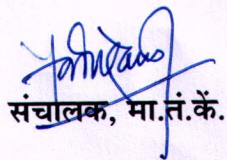 संचालक, मा.तं.कें.